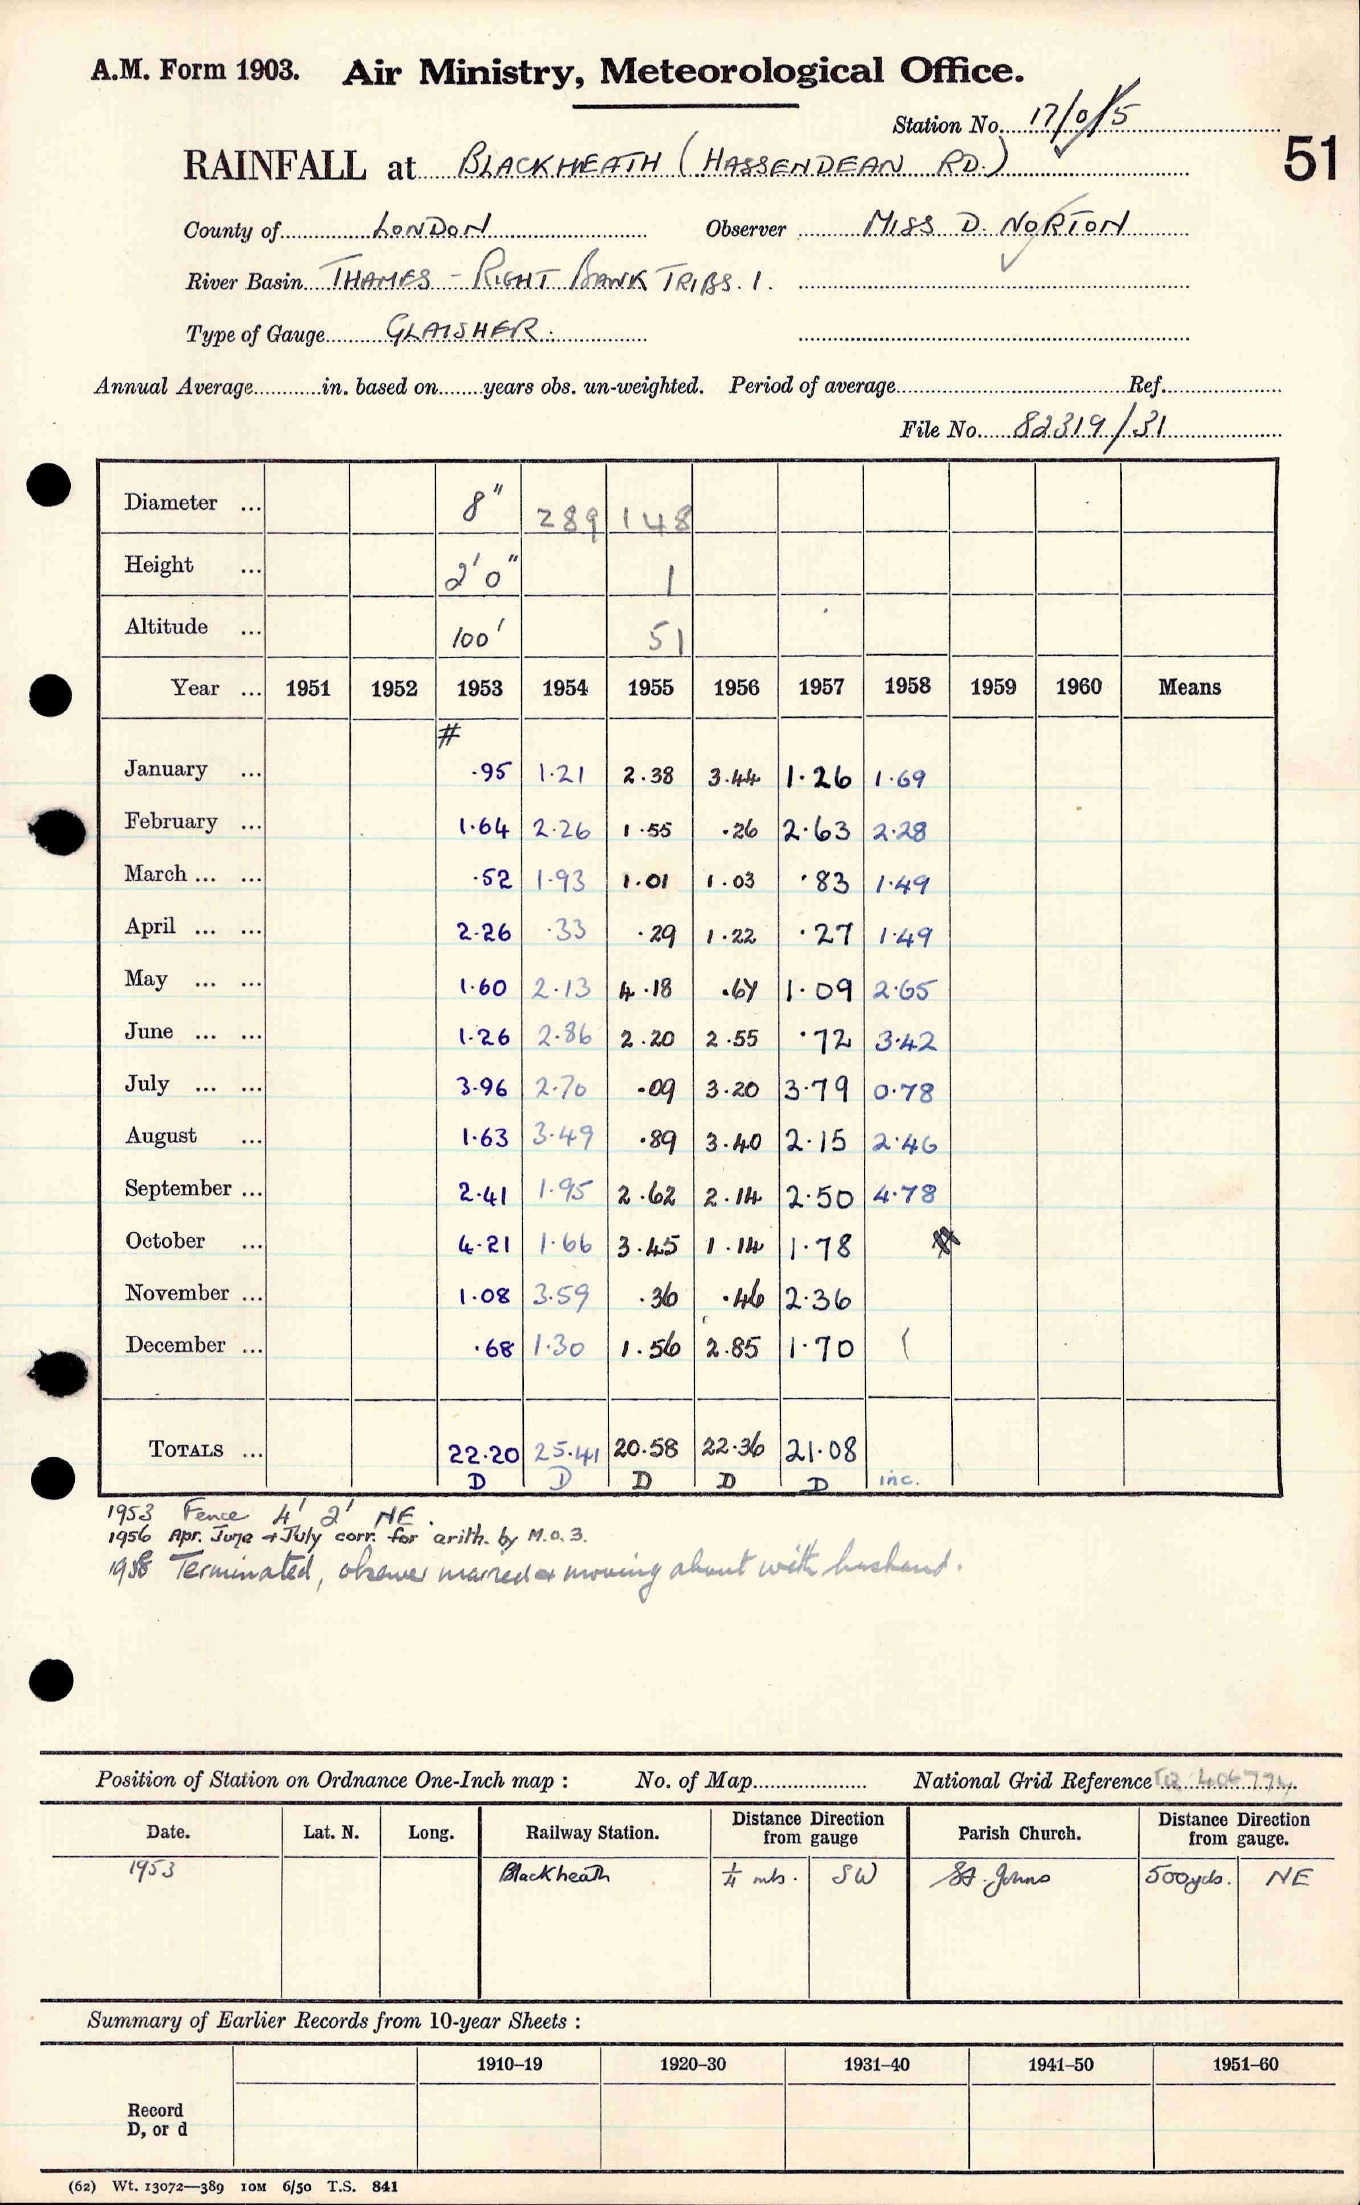 A.M. Form 1903. Air Ministry, Meteorological Office.
Station No. 17/0/5
51
RAINFALL at BLACKHEATH (HASSENDEAN RD.)
County of LONDON Observer MISS D. NORTON
River Basin THAMES - RIGHT BANK TRIBS. 1.
Type of Gauge GLAISHER.
Annual Average in. based on years obs. un-weighted. Period of average Ref.
File No. 82319/31
Diameter ... 8" 289 148
Height ... 2'0" 1
Altitude ... 100' 51
Year ... 1951 1952 1953 1954 1955 1956 1957 1958 1959 1960 Means
#
January ... .95 1.21 2.38 3.44 1.26 1.69
February ... 1.64 2.26 1.55 .26 2.63 2.28
March ... ... .52 1.93 1.01 1.03 .83 1.49
April ... ... 2.26 .33 .29 1.22 .27 1.49
May ... ... 1.60 2.13 4.18 .67 1.09 2.65
June ... ... 1.26 2.86 2.20 2.55 .72 3.42
July ... ... 3.96 2.70 .09 3.20 3.79 0.78
August ... 1.63 3.49 .89 3.40 2.15 2.46
September ... 2.41 1.95 2.62 2.14 2.50 4.78
October ... 4.21 1.66 3.45 1.14 1.78 #
November ... 1.08 3.59 .36 .46 2.36
December ... .68 1.30 1.56 2.85 1.70
TOTALS ... 22.20 25.41 20.58 22.36 21.08
D D D D D inc.
1953 Fence 4' 2' NE.
1956 Apr. June + July corr. for arith. by M.O.3.
1958 Terminated, observer married & moving about with husband.
Position of Station on Ordnance One-Inch map : No. of Map National Grid Reference TQ 406774
Date. Lat. N. Long. Railway Station. Distance Direction from gauge Parish Church. Distance Direction from gauge.
1953 Blackheath 1/4 mls. SW St. Johns 500yds. NE
Summary of Earlier Records from 10-year Sheets :
1910–19 1920–30 1931–40 1941–50 1951–60
Record
D, or d
(62) Wt. 13072—389 10M 6/50 T.S. 841